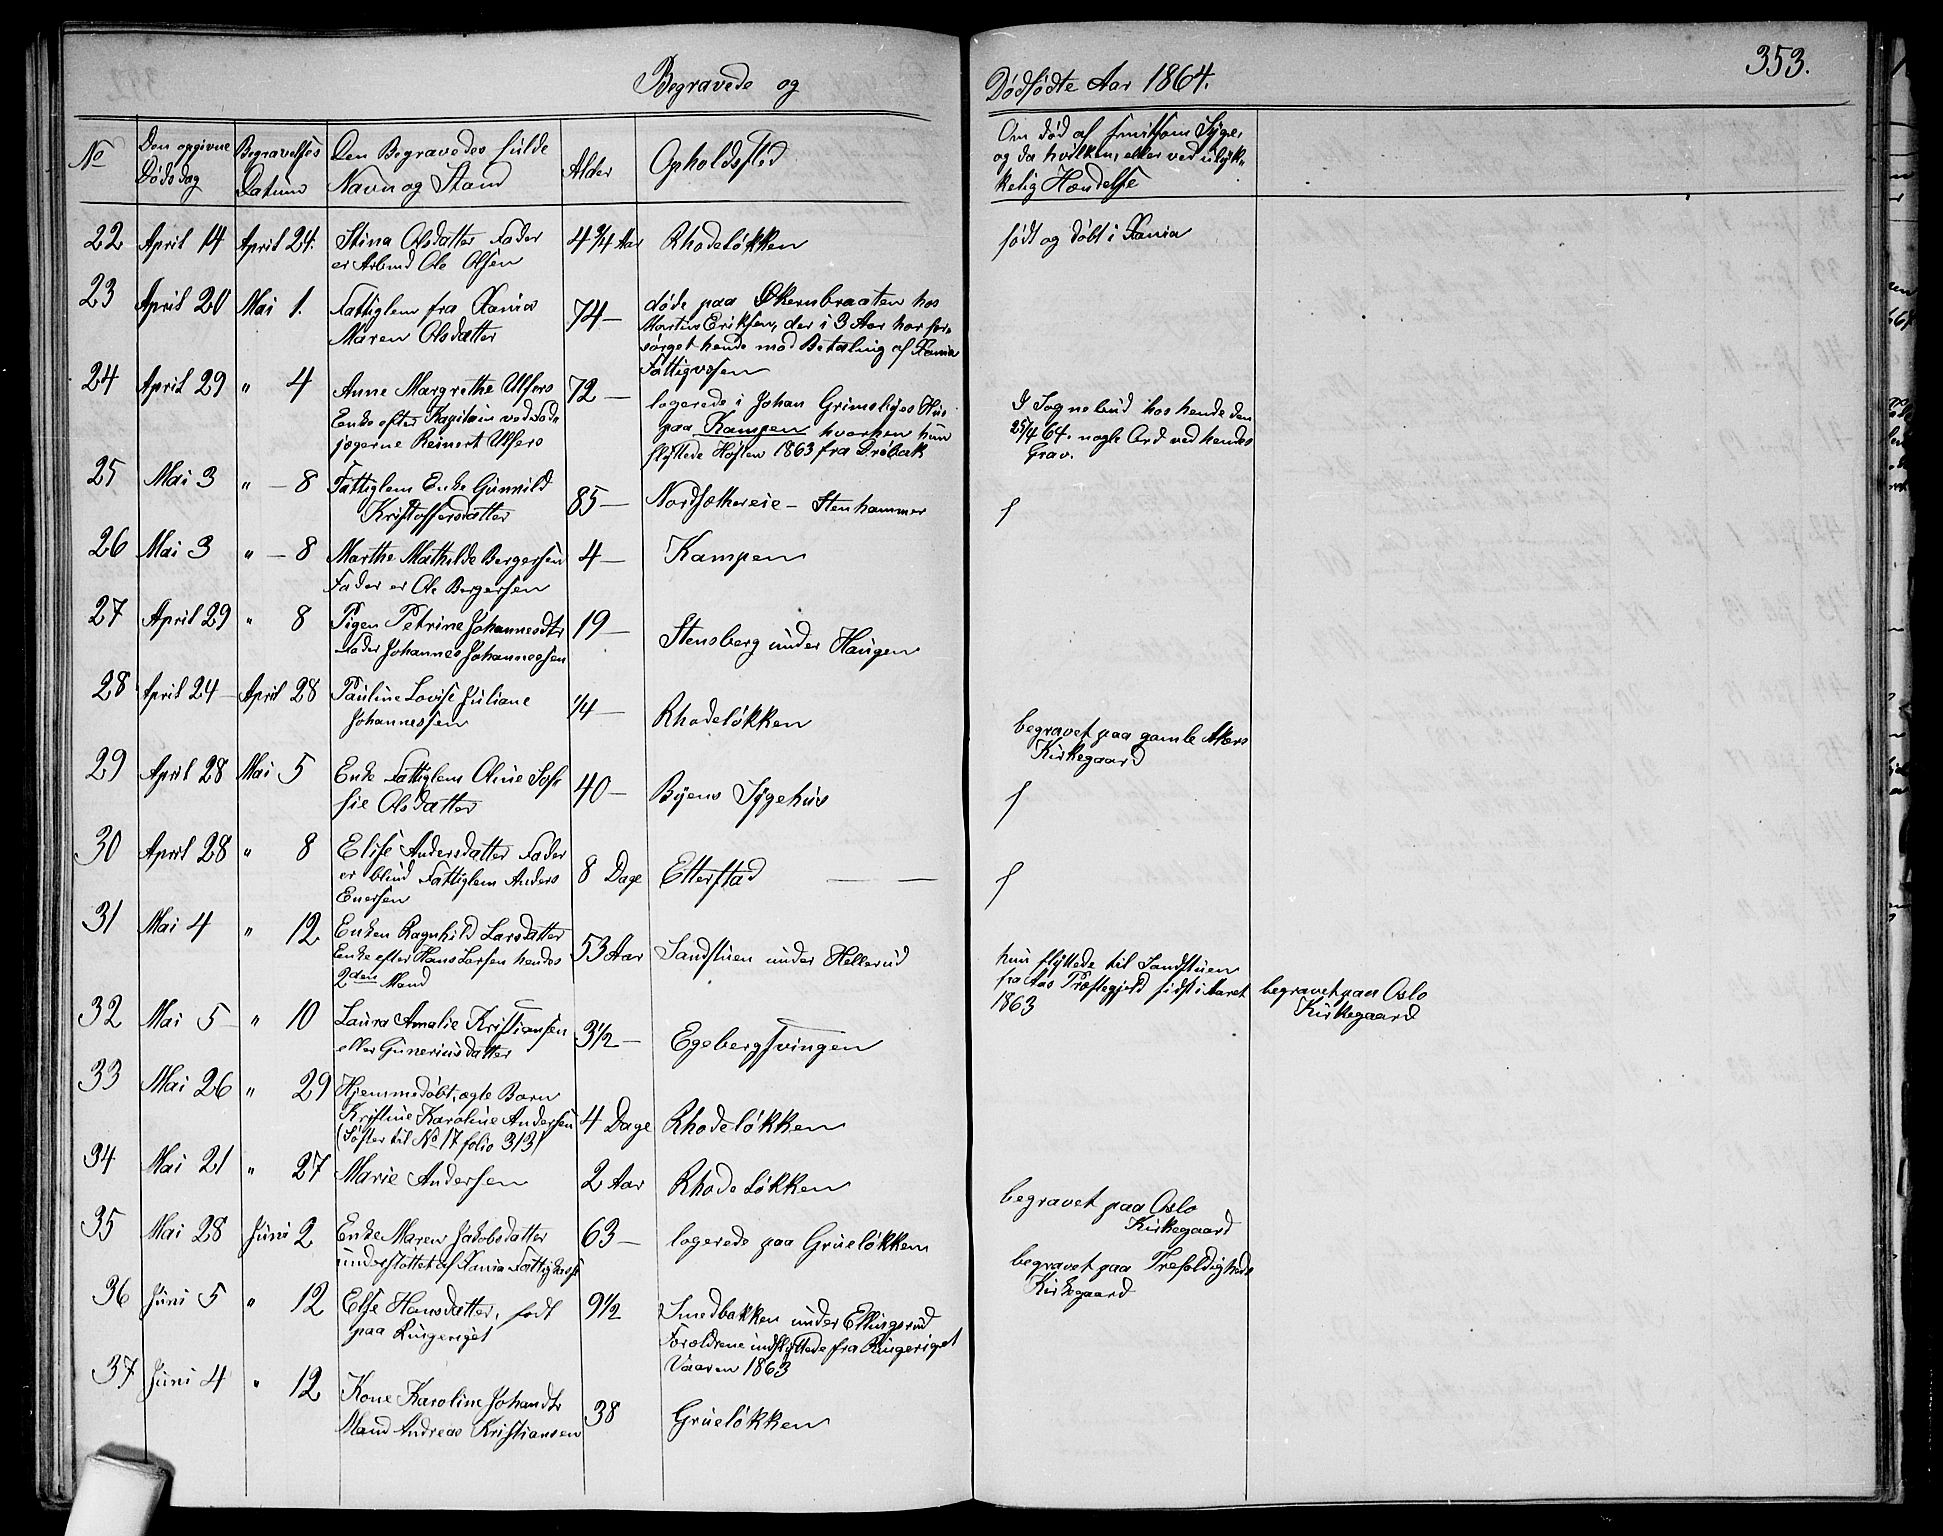 Begravede og
Dødfødte Aar 1864.
353.
No
Den opgivne Dødsdag
Begravelses Datum
Den Begravedes fulde Navn og Stand
Alder
Opholdssted
Om død af smitsom Syge,
og da hvilken, eller ved ulyk-
kelig Hændelse
22 April 14 April 24. Stina Olsdatter Fader 4 3/4 Aar Rhodeløkken født og døbt i Xania
er Arbmd Ole Olsen
23 April 20 Mai 1. Fattiglem fra Xania 74 — døde paa Økernbraaten hos
Maren Olsdatter Martin Eriksen, der i 3 Aar har for-
sørget hende mod Betaling af Xania
Fattigvæsen
24 April 29 " 4 Anne Margrethe Ulfers 72 — logerede i Johan Grimsliges Hus I Sognebud hos hende den
Enke efter Kapitain ved
paa Kampen hvorhen hun 25/4 64. nogle Ord ved hendes
jægerne Reinert Ulfers flyttede Høsten 1863 fra Drøbak Grav.
25 Mai 3 " — 8 Fattiglem Enke Gunnild 85 — Nordsæthereie — Stenhammer f
Kristoffersdatter
26 Mai 3 " — 8 Marthe Mathilde Bergersen 4 — Kampen
Fader er Ole Bergersen
27 April 29 " 8 Pigen Petrine Johannesdtr 19 — Stensberg under Haugen
Fader Johannes Johannessen
28 April 24 — April 28 Pauline Lovise Juliane 1/4 — Rhodeløkken begravet paa gamle Akers
Johannessen Kirkegaard
29 April 28 Mai 5 Enke Fattiglem Oline Sof- 40 — Byens Sygehus f
fie Olsdatter
30 April 28 " 8 Elise Andersdatter Fader 8 Dage Etterstad — — f
er blind Fattiglem Anders
Enersen
31 Mai 4 " 12 Enken Ragnhild Larsdatter 53 Aar Sandstuen under Hellerud hun flyttede til Sandstuen
Enke efter Hans Larsen hendes fra Aas Præstegjeld sidst i Aaret
2den Mand 1863
begravet paa Oslo
Kirkegaard
32 Mai 5 — " 10 Laura Amalie Kristiansen 3 1/2 — Egebergsvingen
eller Guneriusdatter
33 Mai 26 " 29 Hjemmedøbt, ægte Barn 4 Dage Rhodeløkken
Kristine Karoline Andersen
(Søster til No 17 folio 313)
34 Mai 21 " 27 Marie Andersen 2 Aar Rhodeløkken begravet paa Oslo
Kirkegaard
35 Mai 28 Juni 2 Enke Maren Jacobsdatter 63 — logerede paa Grueløkken begravet paa Trefoldigheds
understøttet af Xania Fattigkasse Kirkegaard
36 Juni 5 " 12 Else Hansdatter, født 9 1/2 Smedbakken under Ellingsrud
paa Ringeriget Forældrene indflyttede fra Ringeriget
Vaaren 1863
37 Juni 4 " 12 Kone Karoline Johansdtr 38 Grueløkken
Mand Andreas Kristiansen